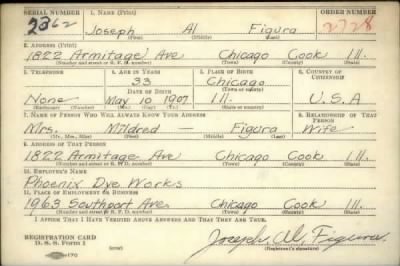 SERIAL NUMBER 1. NAME (Print) ORDER NUMBER
2362 Joseph Al Figura 2728
(First) (Middle) (Last)
2. ADDRESS (Print)
1822 Armitage Ave Chicago Cook Ill.
(Number and street or R. F. D. number) (Town) (County) (State)
3. TELEPHONE 4. AGE IN YEARS 5. PLACE OF BIRTH 6. COUNTRY OF CITIZENSHIP
33 Chicago
DATE OF BIRTH (Town or county)
None May 10 1907 Ill. U.S.A
(Mo.) (Day) (Yr.) (State or country)
7. NAME OF PERSON WHO WILL ALWAYS KNOW YOUR ADDRESS 8. RELATIONSHIP OF THAT PERSON
Mrs. Mildred — Figura Wife
(Mr., Mrs., Miss) (First) (Middle) (Last)
9. ADDRESS OF THAT PERSON
1822 Armitage Ave Chicago Cook Ill.
(Number and street or R. F. D. number) (Town) (County) (State)
10. EMPLOYER'S NAME
Phoenix Dye Works
11. PLACE OF EMPLOYMENT OR BUSINESS
1963 Southport Ave. Chicago Cook Ill.
(Number and street or R. F. D. number) (Town) (County) (State)
I AFFIRM THAT I HAVE VERIFIED ABOVE ANSWERS AND THAT THEY ARE TRUE.
REGISTRATION CARD
D. S. S. Form 1 Joseph Al. Figura
(Registrant's signature)